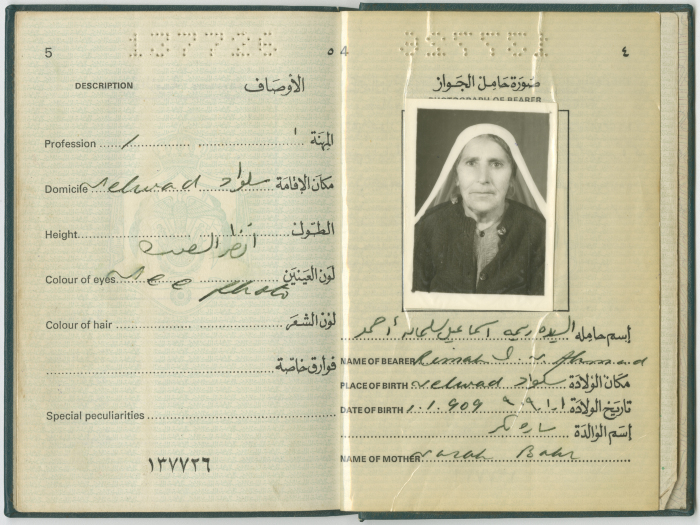 5
137726
٥
DESCRIPTION الأوصاف
Profession / المهنة
Domicile Selwad سلواد مكان الإقامة
Height الطول
انظر الصورة
Colour of eyes See لون العينين
Photo
Colour of hair لون الشعر
فوارق خاصة
Special peculiarities
١٣٧٧٢٦
4
137726
٤
صورة حامل الجواز
PHOTOGRAPH OF BEARER
السيدة ريمه اسماعيل سلمان أحمد إسم حامله
NAME OF BEARER Rimah I. Ahmad
PLACE OF BIRTH Selwad سلواد مكان الولادة
DATE OF BIRTH 1.1.909 ١.١.٩٠٩ تاريخ الولادة
ساره بكر إسم الوالدة
NAME OF MOTHER Sarah Bakr